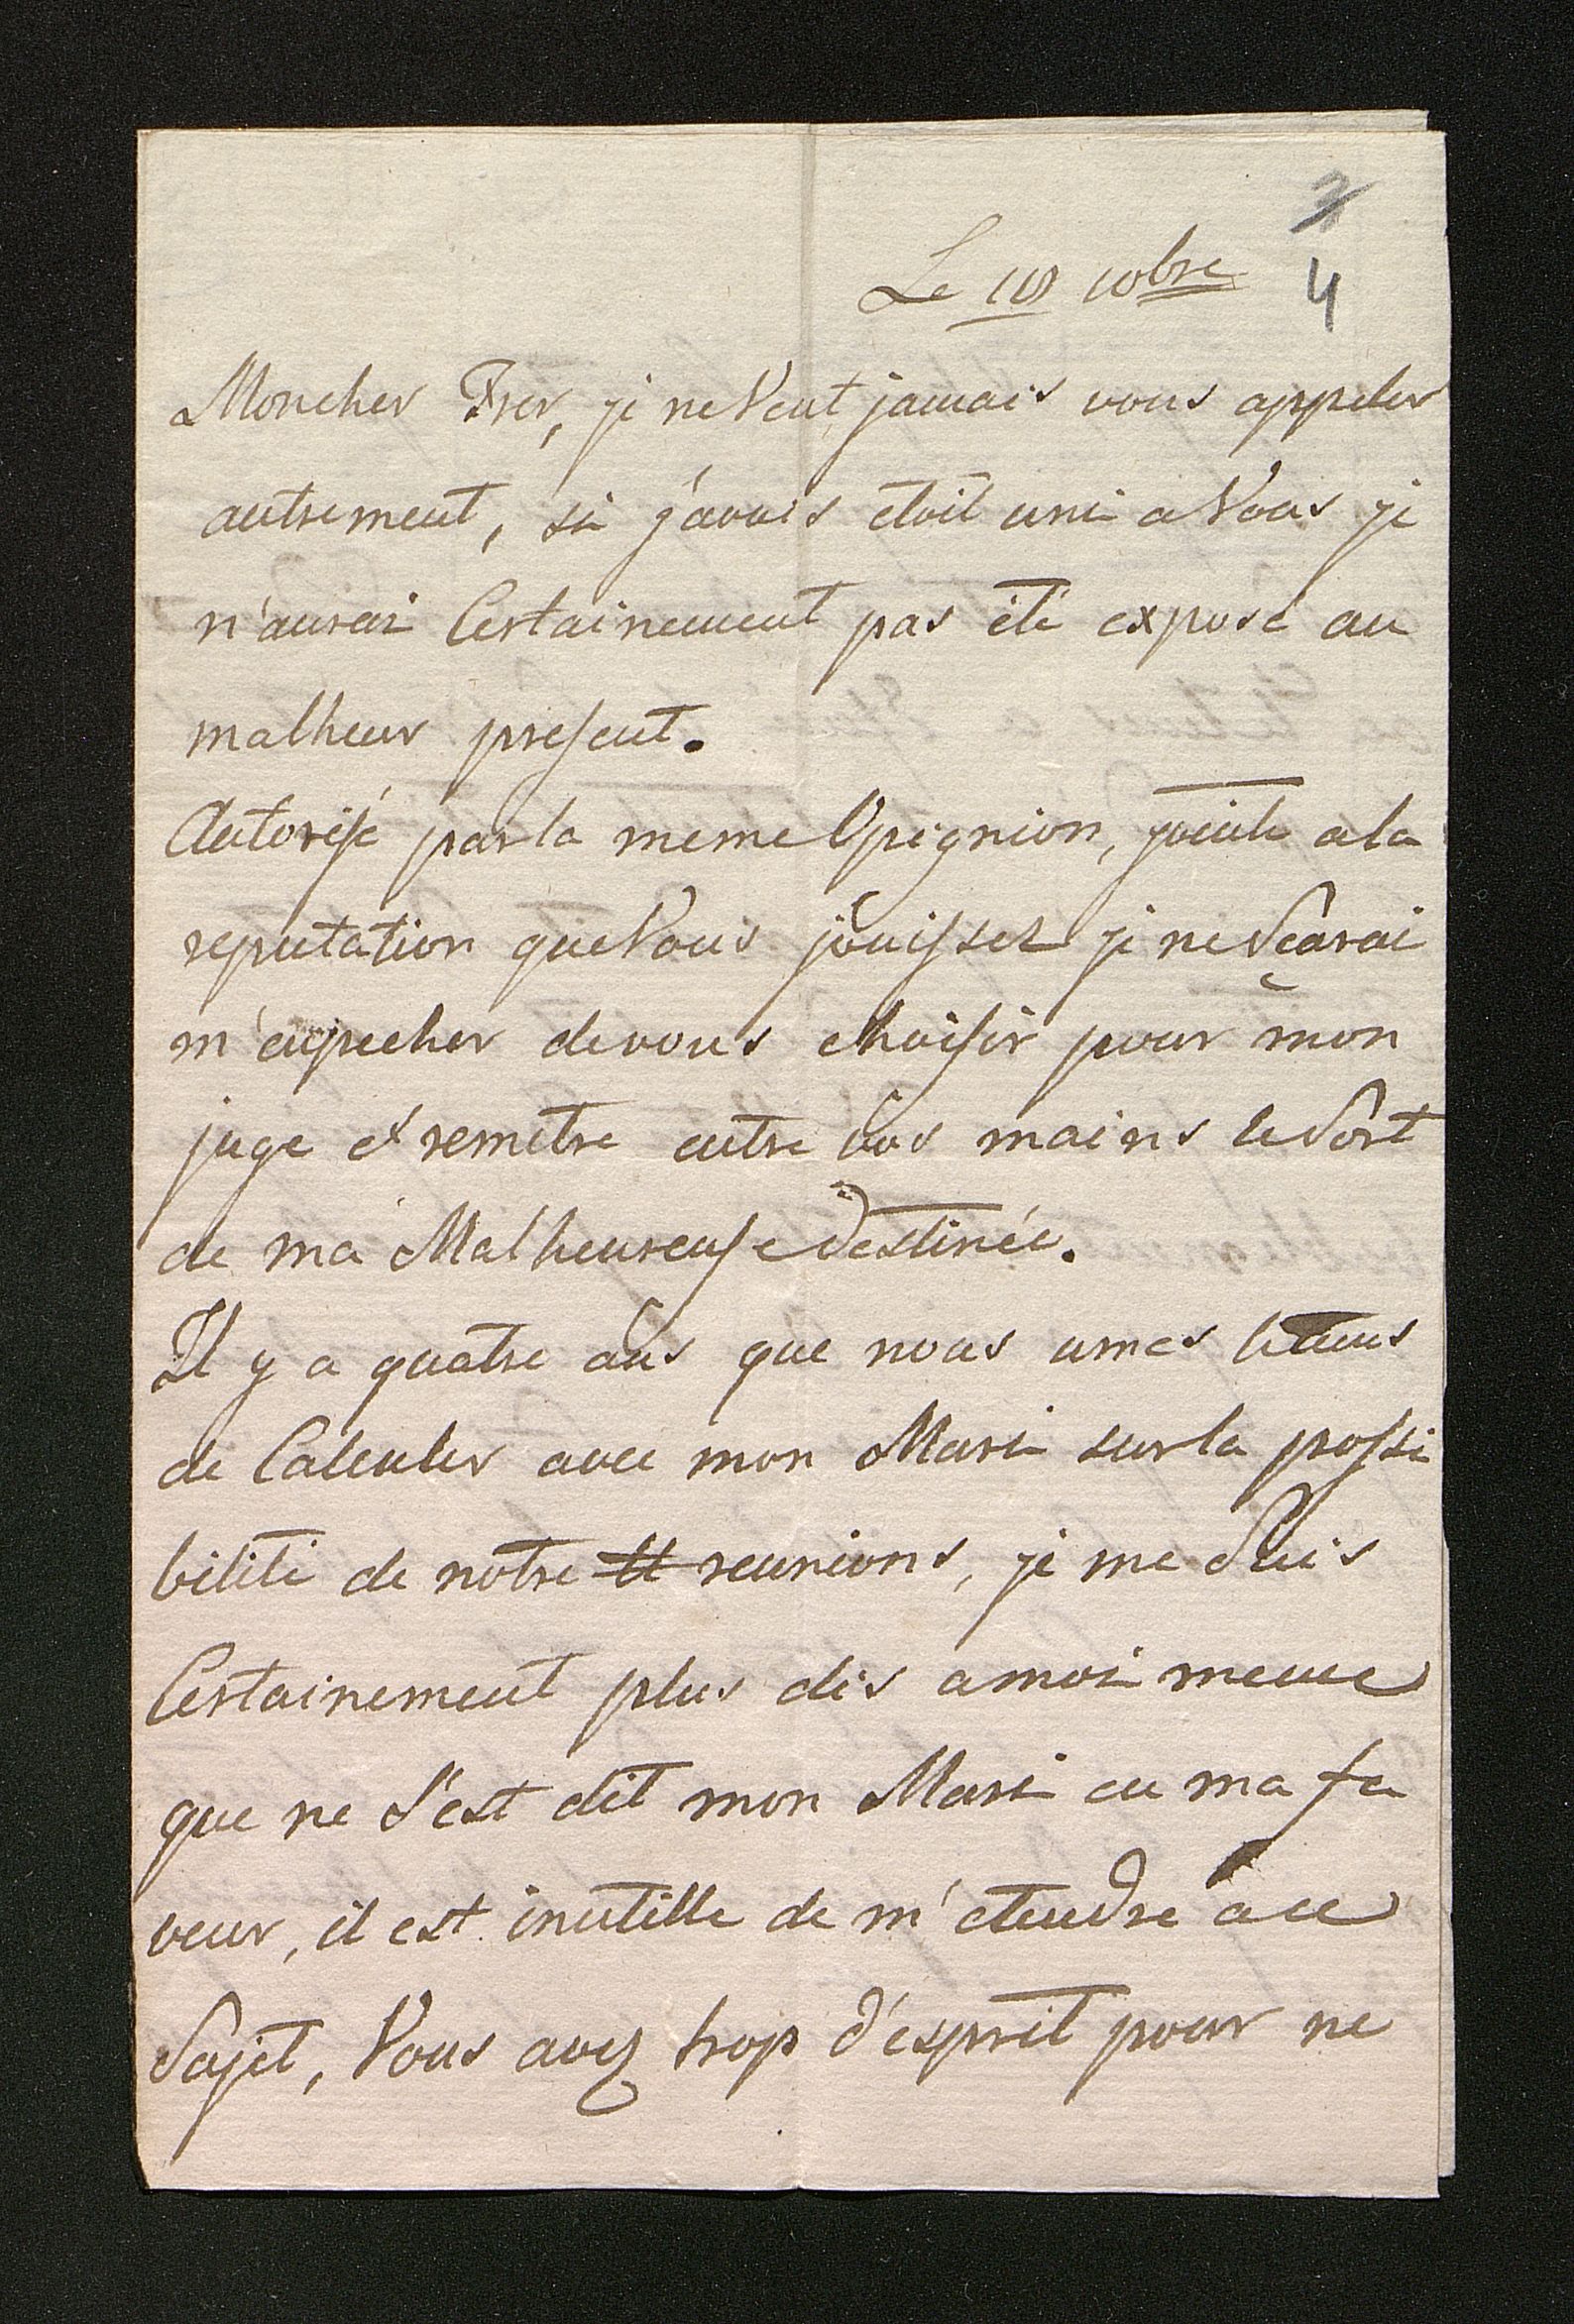 7
4
Le 18 10bre
Moncher Frer, je neVeut jamais vous appeler
autrement, si j'avais étoit uni aVous je
n'aurai Certainement pas été exposé au
malheur present.
Autorisé par la meme Opignion, jointe a la
reputation queVous jouisser je neSçarai
m'enpecher devous choisir pour mon
juge et remetre entre vos mains leSort
de ma Malheureuse destinée.
Il y a quatre ans que nous umes
de Calculer avec mon Mari sur la possi
bilité de notre reunions, je me Suis
Certainement plus dis amoi meme
que ne S'est dit mon Mari en ma fa
veur, il est inutille de m'etendre a ce
Sujet, Vous avez trop d'esprit pour ne